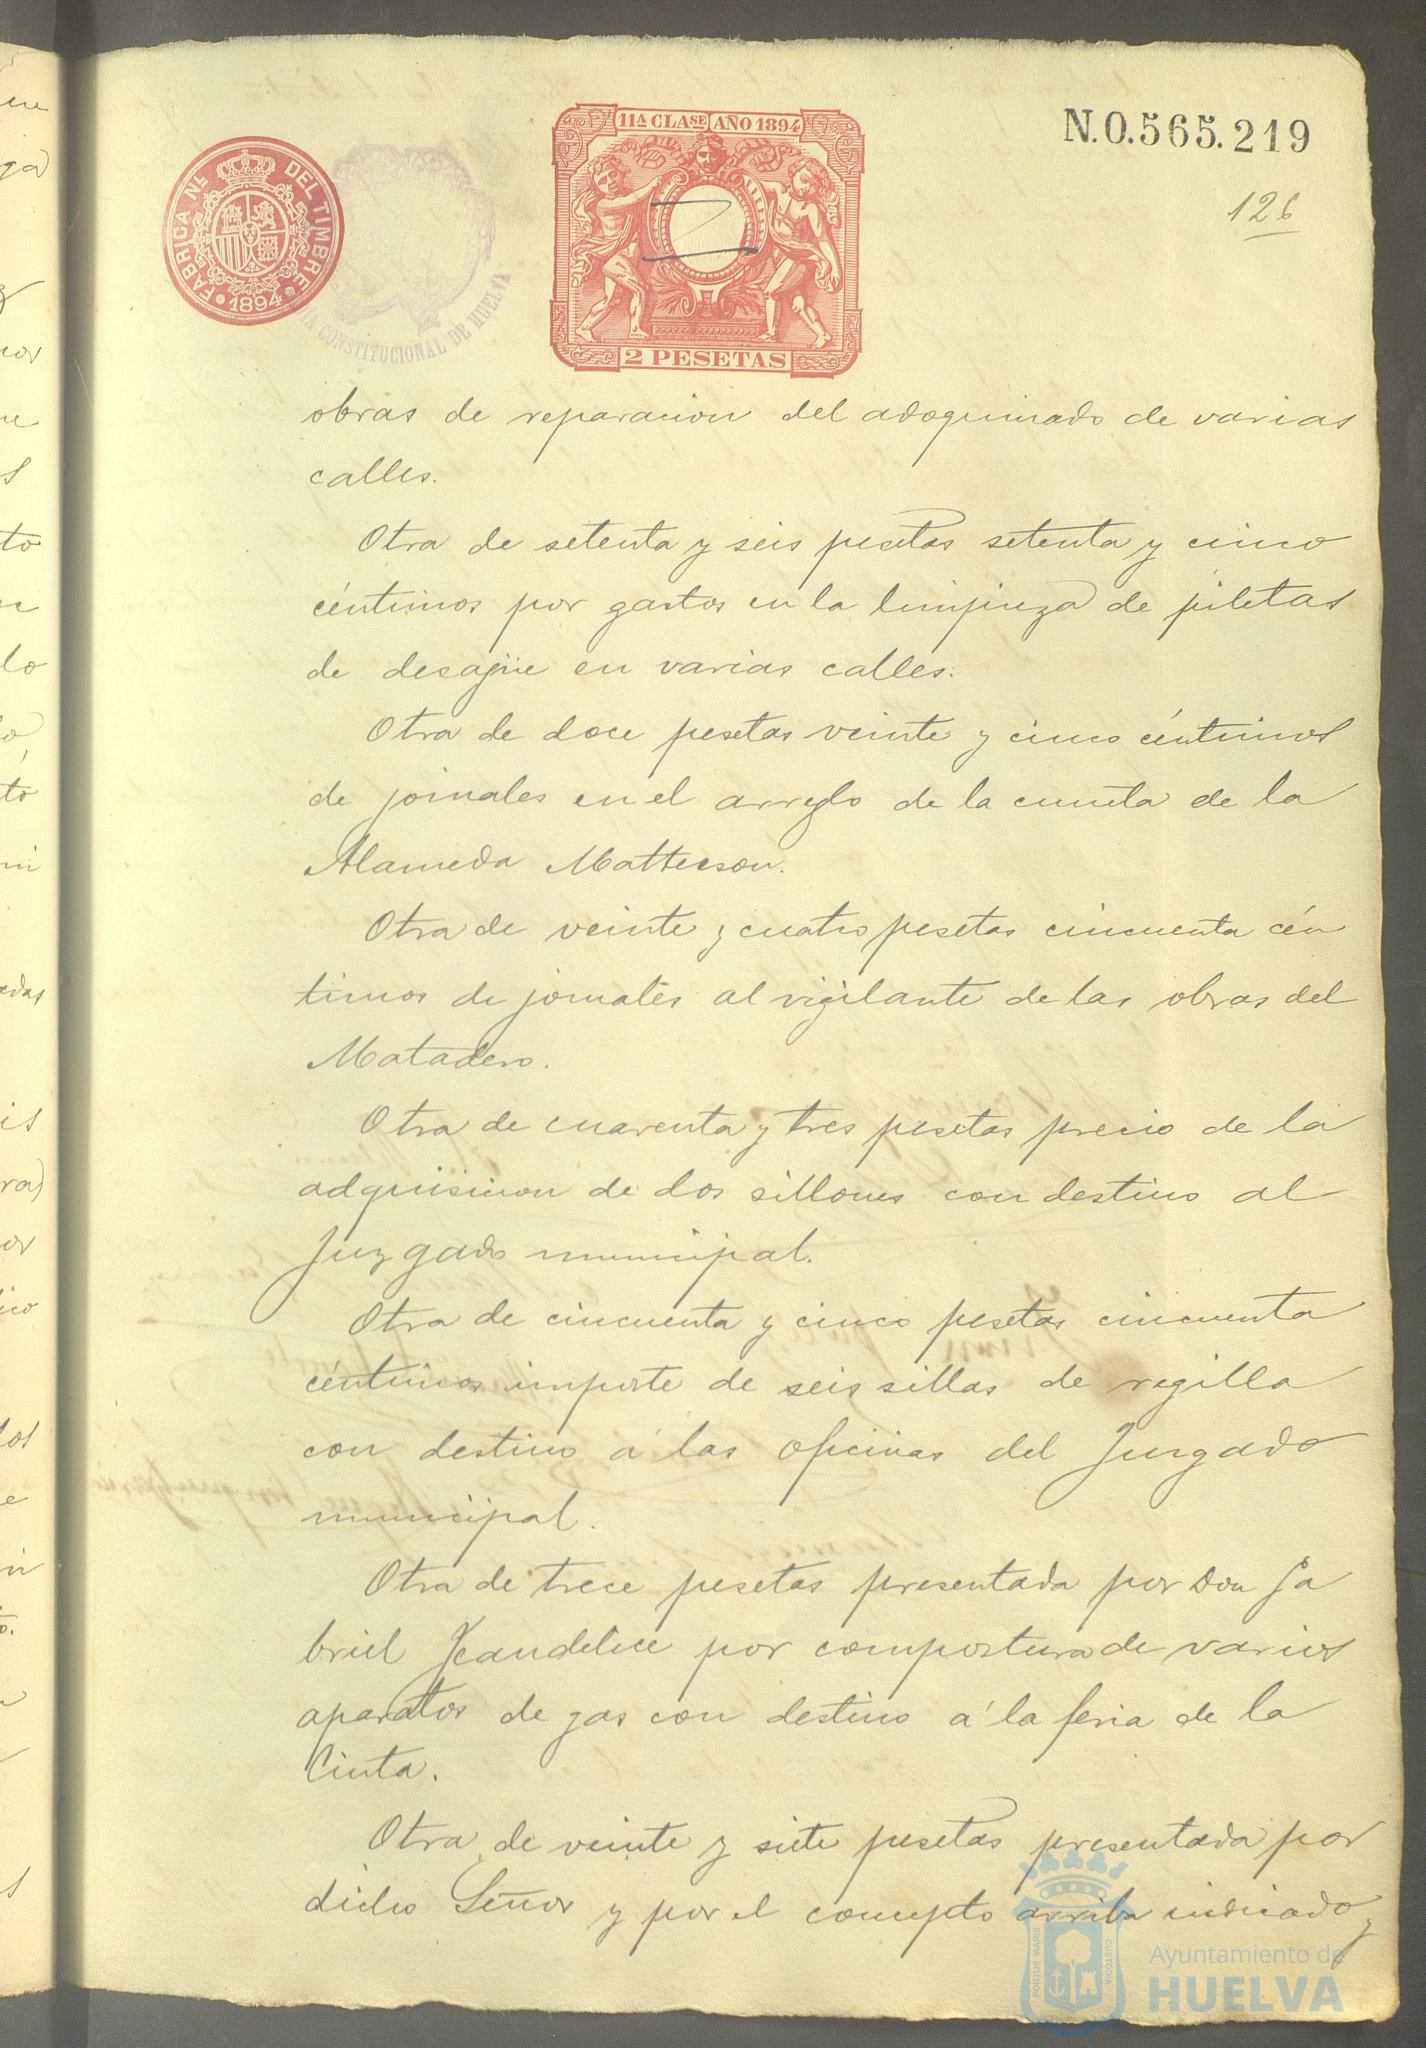 11ª CLASE AÑO 1894
N.0.565.219
126
FABRICA Nl. DEL TIMBRE
1894
CONSTITUCIONAL DE HUELVA
2 PESETAS
obras de reparacion del adoquinado de varias
calles.
Otra de setenta y seis pesetas setenta y cinco
céntimos por gastos en la limpieza de piletas
de desagüe en varias calles.
Otra de doce pesetas veinte y cinco céntimos
de jornales en el arreglo de la cuneta de la
Alameda Matterson.
Otra de veinte y cuatro pesetas cincuenta cén
timos de jornales al vigilante de las obras del
Matadero.
Otra de cuarenta y tres pesetas precio de la
adquisicion de dos sillones con destino al
Juzgado municipal.
Otra de cincuenta y cinco pesetas cincuenta
céntimos importe de seis sillas de regilla
con destino á las oficinas del Juzgado
municipal.
Otra de trece pesetas presentada por Don Ga
briel Jeandelice por compostura de varios
aparatos de gas con destino á la feria de la
Cinta.
Otra de veinte y siete pesetas presentada por
dicho Señor y por el concepto arriba indicado y
PORTUS MARIS CUSTODIA
Ayuntamiento de
HUELVA